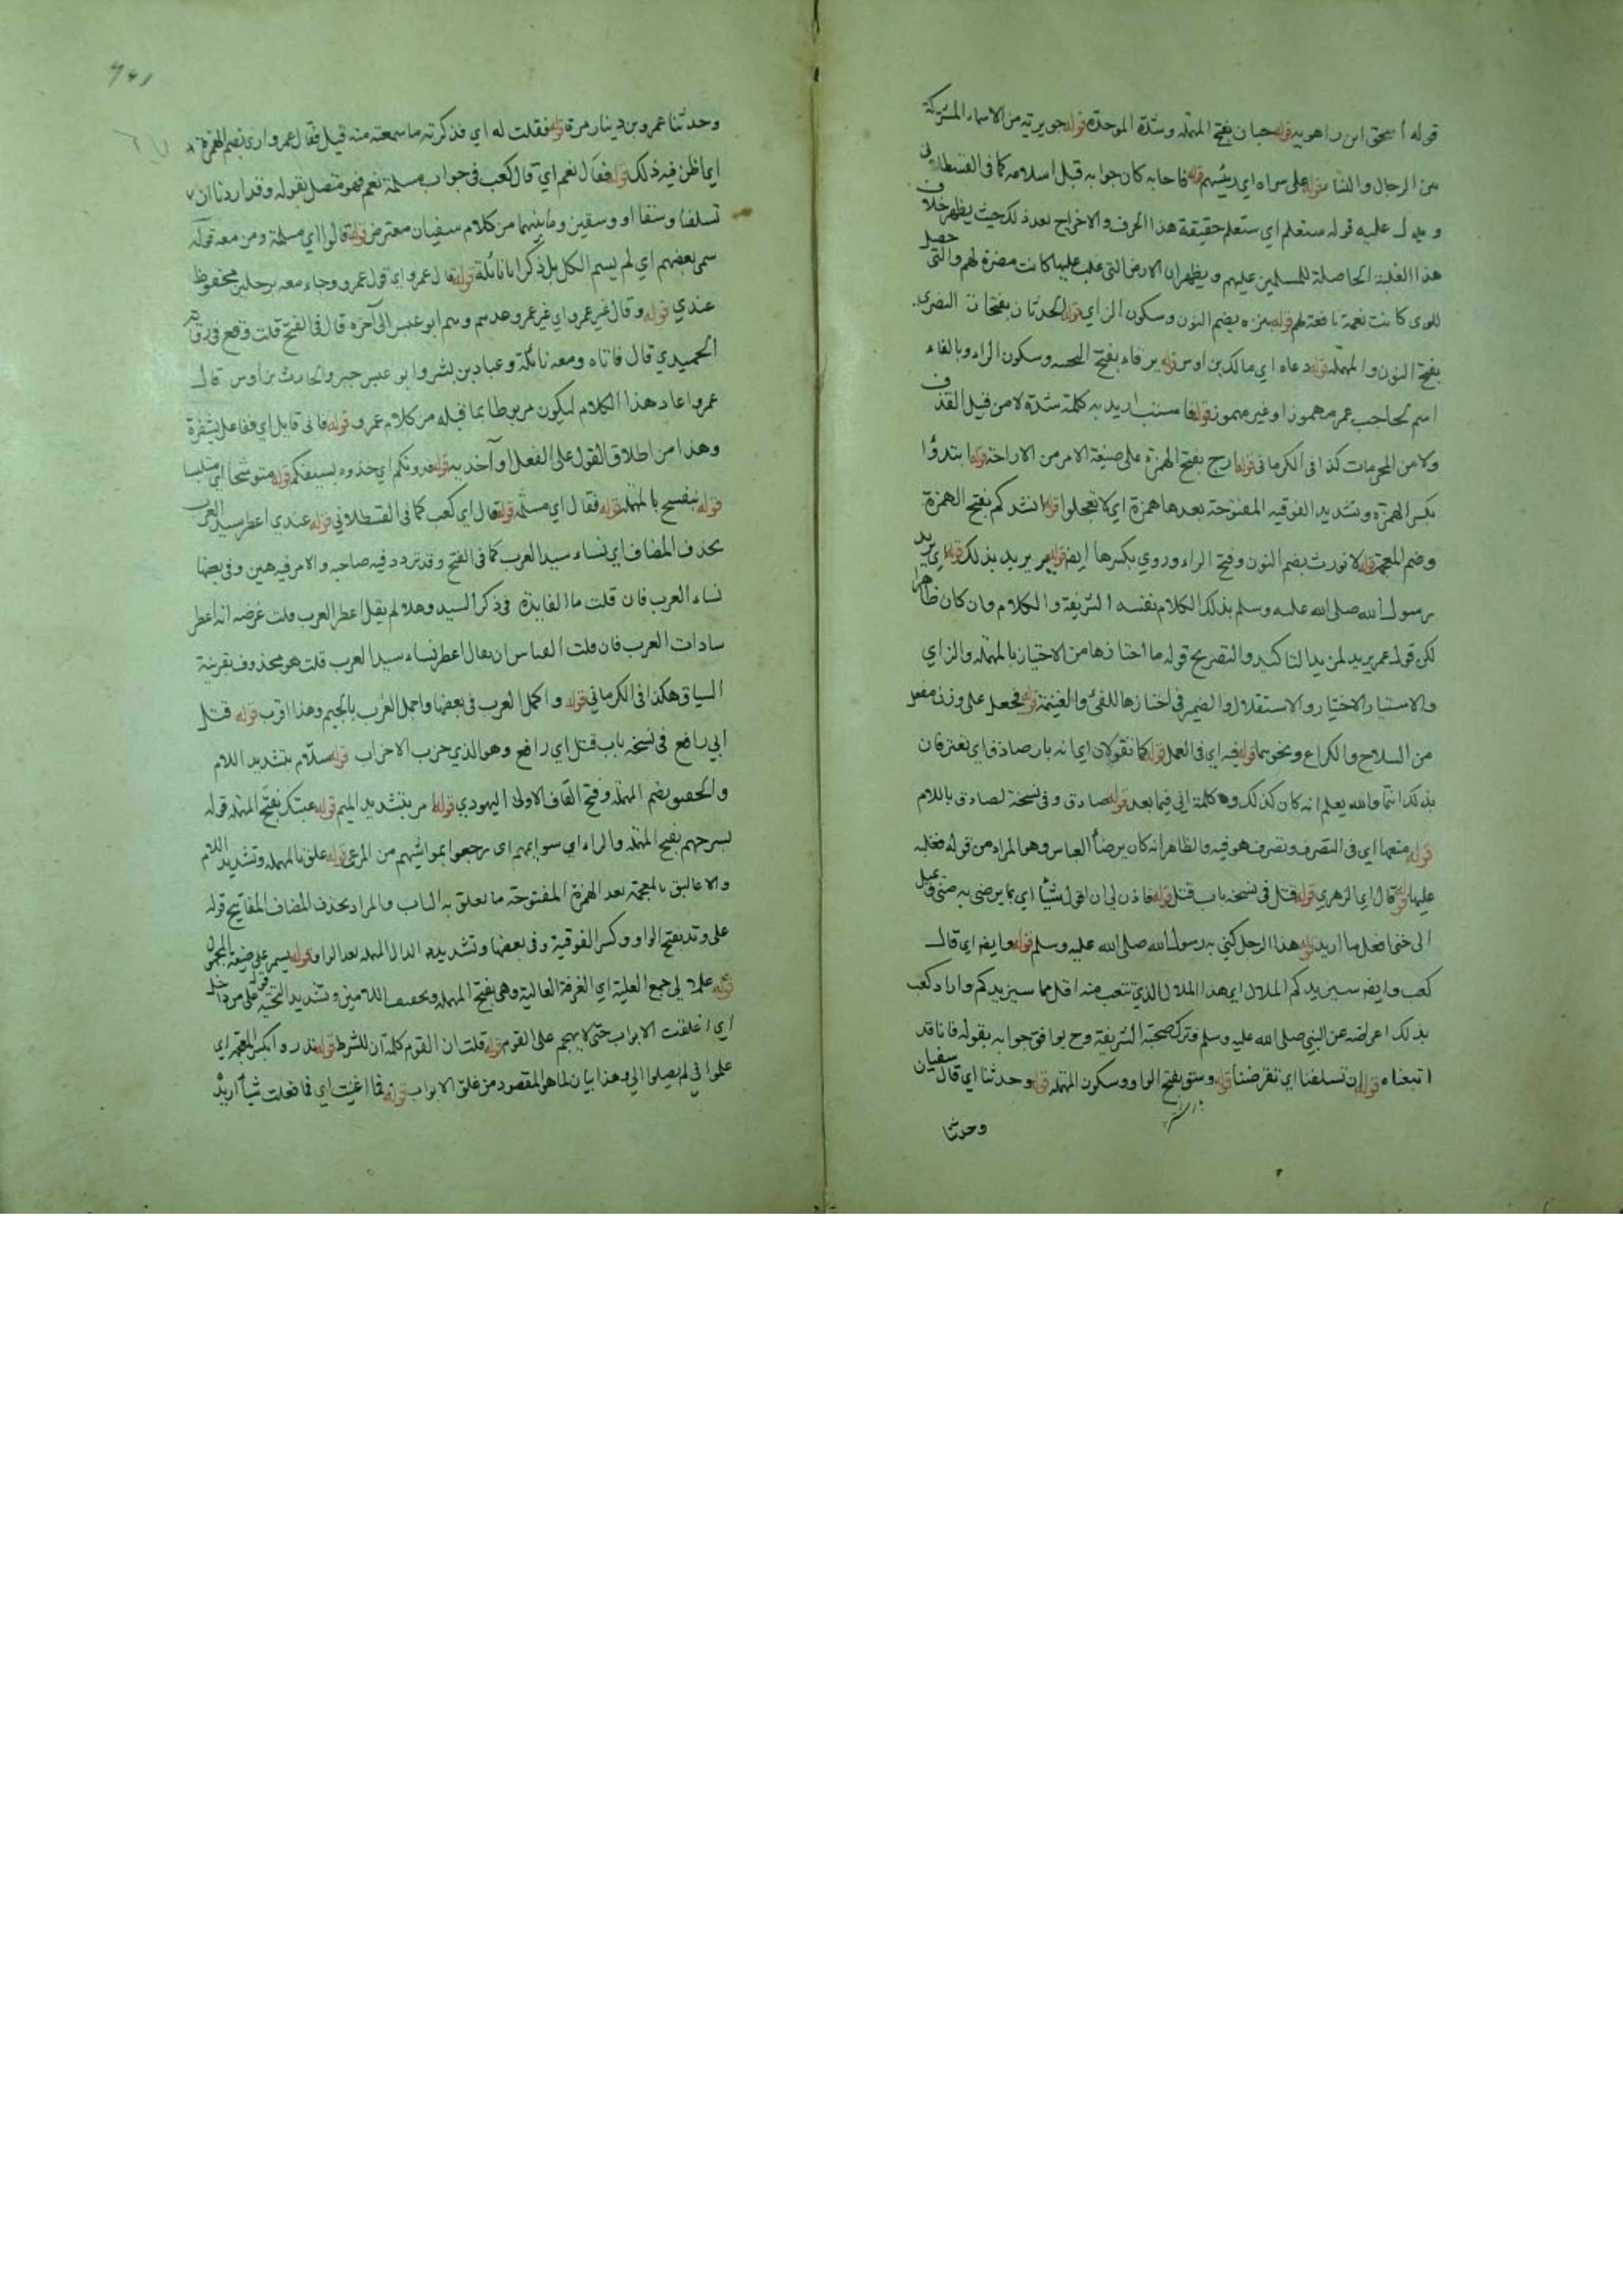 قوله اسحق ابن راهويه قوله حبان بفتح المهملة وشدة الموحدة قوله جويرية من الاسماء المشتركة
من الرجال والنساء قوله على سراة اي رئيسهم قوله فاجابه كان جوابه قبل اسلامه كما في القسطلاني
و يدل عليه قوله ستعلم اي ستعلم حقيقة هذا الحرف والاخراج بعد ذلك حيث يظهر خلاف
هذا الغلبة الحاصلة للمسلمين عليهم ويظهر ان الارض التي غلب عليها كانت مضرة لهم والتي حصل
كانت نعمة نافعة لهم قوله بنزه بضم النون وسكون الزاي قوله الحدثان بفتحات النصري
بفتح النون والمهملة قوله دعاه اي مالك بن اوس قوله يرفاء بفتح التحتية وسكون الراء وبالفاء
اسم لحاجب عمر مهموزا وغير مهموز قوله فاستب اريد به كلمة شدة لا من قبيل القذف
ولا من المحرمات كذا في الكرماني قوله ارح بفتح الهمزة على صيغة الامر من الاراحة قوله اتئدوا
بكسر الهمزة وتشديد الفوقية المفتوحة بعدها همزة اي لا تعجلوا قوله انشدكم بفتح الهمزة
وضم المعجمة قوله لا نورث بضم النون وفتح الراء وروي بكسرها ايضا قوله يريد بذلك قوله اي يريد
رسول الله صلى الله عليه وسلم بذلك الكلام نفسه الشريفة والكلام وان كان ظاهرا
لكن قول عمر يريد لمزيد التاكيد والتصريح قوله ما احتازها من الاحتياز بالمهملة والزاي
والاستيثار الاختيار والاستقلال والضمير في احتازها للفيء والغنيمة قوله فجعل على وزن مفعل
من السلاح والكراع ونحوهما قوله فيه اي في العمل قوله كما تقولان اي انه بار صادق اي تعترفان
بذلك انتما والله يعلم انه كان كذلك وكلمة اني فيما بعد قوله صادق وفي نسخة لصادق باللام
قوله منعها اي في التصرف وتصرف هو فيه والظاهر انه كان برضا العباس وهو المراد من قوله فغلبه
عليها قوله قال اي الزهري قوله قتل في نسخة باب قتل قوله فاذن لي ان اقول شيئا اي بما يرضى به
الى حتى افعل ما اريد قوله هذا الرجل كني به رسول الله صلى الله عليه وسلم قوله وايضا اي قال
كعب وايضا سيزيدكم الملال اي هذا الملال الذي تتعب منه اقل مما سيزيدكم واراد كعب
بذلك اعراضه عن النبي صلى الله عليه وسلم وترك صحبته الشريفة وح يوافق جوابه بقوله فانا قد
اتبعناه قوله ان تسلفنا اي تقرضنا قوله وسق بفتح الواو وسكون المهملة قوله وحدثنا اي قال سفيان
وحدثنا
وحدثنا عمرو بن دينار مرة قوله فقلت له اي فذكرته ما سمعته منه قبل فقال عمرو ارى بضم الهمزة
اي اظن فيه ذلك قوله فقال نعم اي قال كعب في جواب مسلمة نعم فهو متصل بقوله وقد اردنا ان
تسلفنا وسقا او وسقين وما بينهما من كلام سفيان معترض قوله قالوا اي مسلمة ومن معه قوله
سمى بعضهم اي لم يسم الكل بل ذكر ابا نائلة قوله قال عمرو اي قول عمرو وجاء معه برجلين محفوظ
عندي قوله وقال غير عمرو اي غير عمرو عدهم وسم ابو عبس الى آخره قال في الفتح قلت وقع في رواية
الحميدي قال فاتاه ومعه نائلة وعباد بن بشر وابو عبس جبر والحارث بن اوس قال
عمرو اعاد هذا الكلام ليكون مربوطا بما قبله من كلام عمرو قوله فاني قايل اي فاعل بشعره
وهذا من اطلاق القول على الفعل او آخذ به قوله فدونكم اي خذوه بسيفكم قوله متوشحا اي متلبسا
قوله ينفسح بالمهملة قوله فقال اي مسلمة قوله قال اي كعب كما في القسطلاني قوله عندي اعطر سيد العرب
بحذف المضاف اي نساء سيد العرب كما في الفتح وقد تردد فيه صاحبه والامر فيه هين وفي بعضها
نساء العرب فان قلت ما الفايدة في ذكر السيد وهلا لم يقل اعطر العرب قلت غرضه انه اعطر
سادات العرب فان قلت القياس ان يقال اعطر نساء سيد العرب قلت هو محذوف بقرينة
السياق هكذا في الكرماني قوله واكمل العرب في بعضها واجمل العرب بالجيم وهذا اقرب قوله قتل
ابي رافع في نسخة باب قتل ابي رافع وهو الذي حزب الاحزاب قوله سلام بتشديد اللام
والحقيق بضم المهملة وفتح القاف الاولى اليهودي قوله مر بتشديد الميم قوله عبتك بفتح المهملة قوله
بسرحهم بفتح المهملة والراء اي سوايمهم اي رجعوا بمواشيهم من المرعى قوله علق بالمهملة وتشديد اللام
والاغاليق بالمعجمة بعد الهمزة المفتوحة ما يعلق به الباب والمراد بحذف المضاف المفاتيح قوله
على وتد بفتح الواو وكسر الفوقية وفي بعضها وتشديد الدال المهملة بعد الواو قوله يسمر على صيغة المجهول
قوله علالي جمع العلية اي الغرفة العالية وهي بفتح المهملة وتخفيف اللامين وتشديد التحتية قوله على من داخل
اي اغلقت الابواب حتى لا يهجم على القوم قوله قلت ان القوم كلمة ان للشرط قوله نذروا بكسر المعجمة اي
علموا في لم يصلوا الي وهذا بيان لما هو المقصود من غلق الابواب قوله فما اغنيت اي فما فعلت شيأ اريد